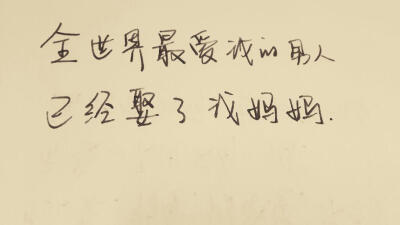 全世界最爱我的男人
已经娶了我妈妈.